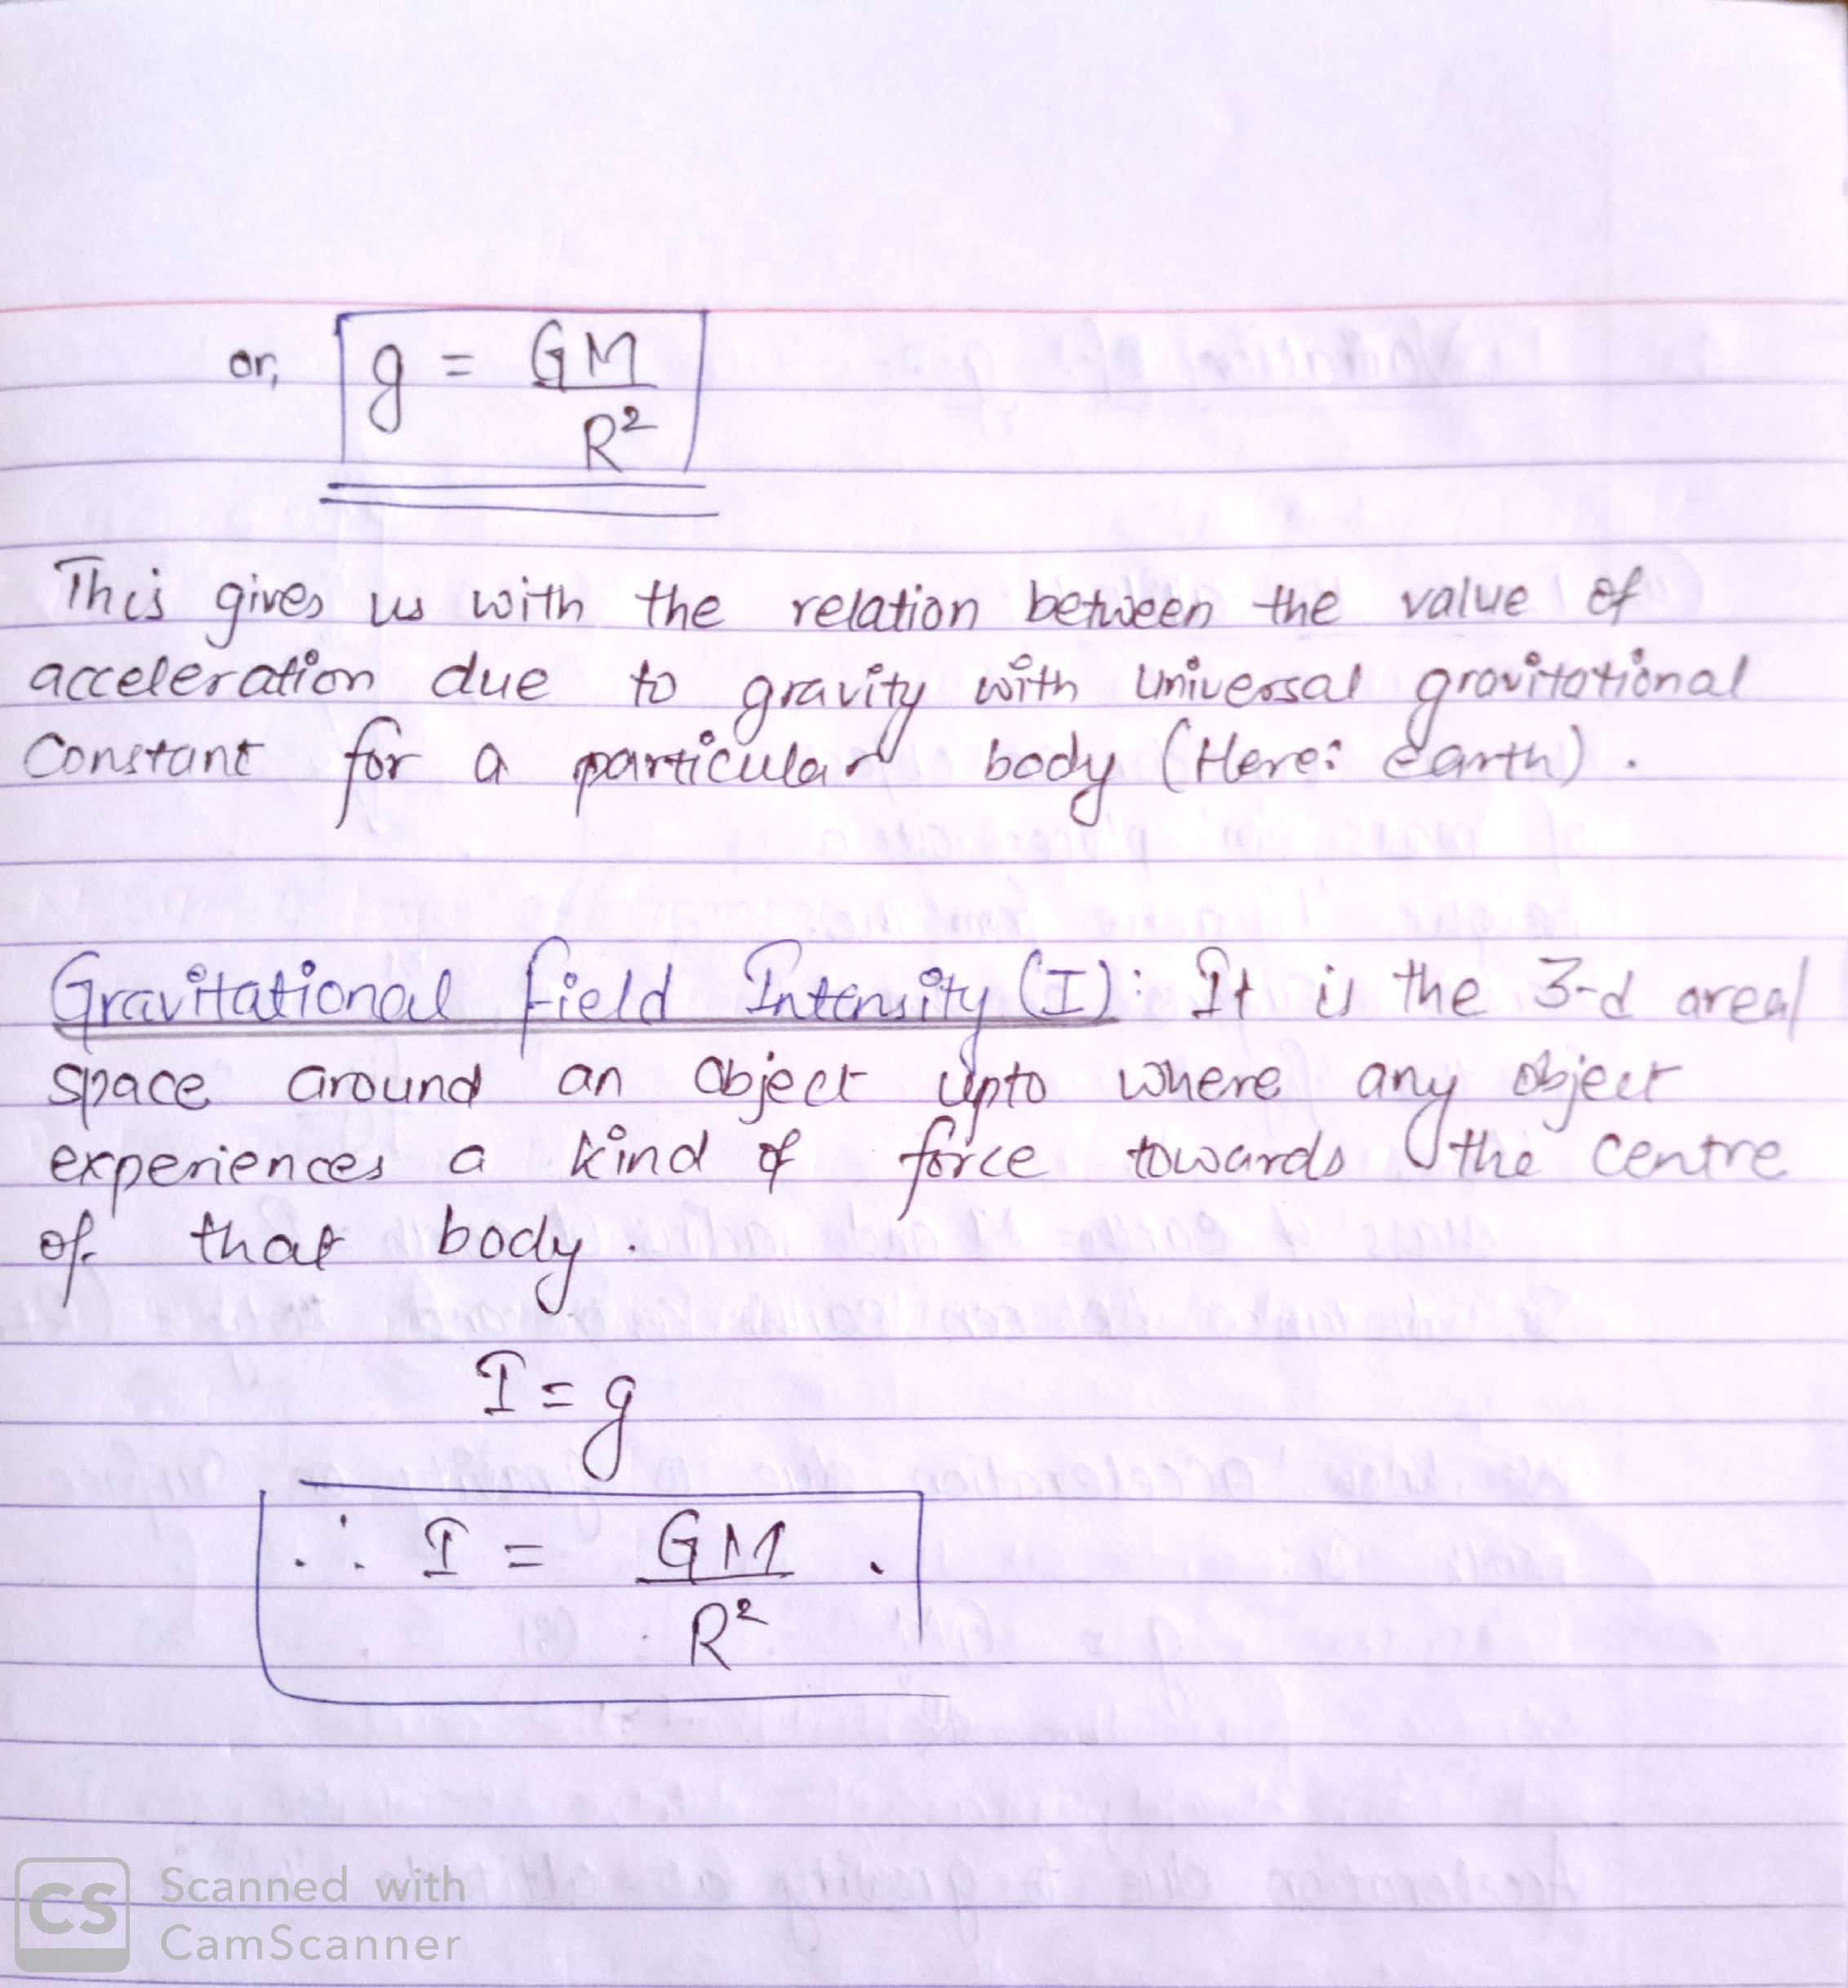 or, g = GM
R²
This gives us with the relation between the value of
acceleration due to gravity with universal gravitational
Constant for a particular body (Here: earth).
Gravitational field Intensity (I): It is the 3-d area/
space around an object upto where any object
experiences a kind of force towards the centre
of that body.
I = g
∴ I = GM .
R²
CS Scanned with
CamScanner